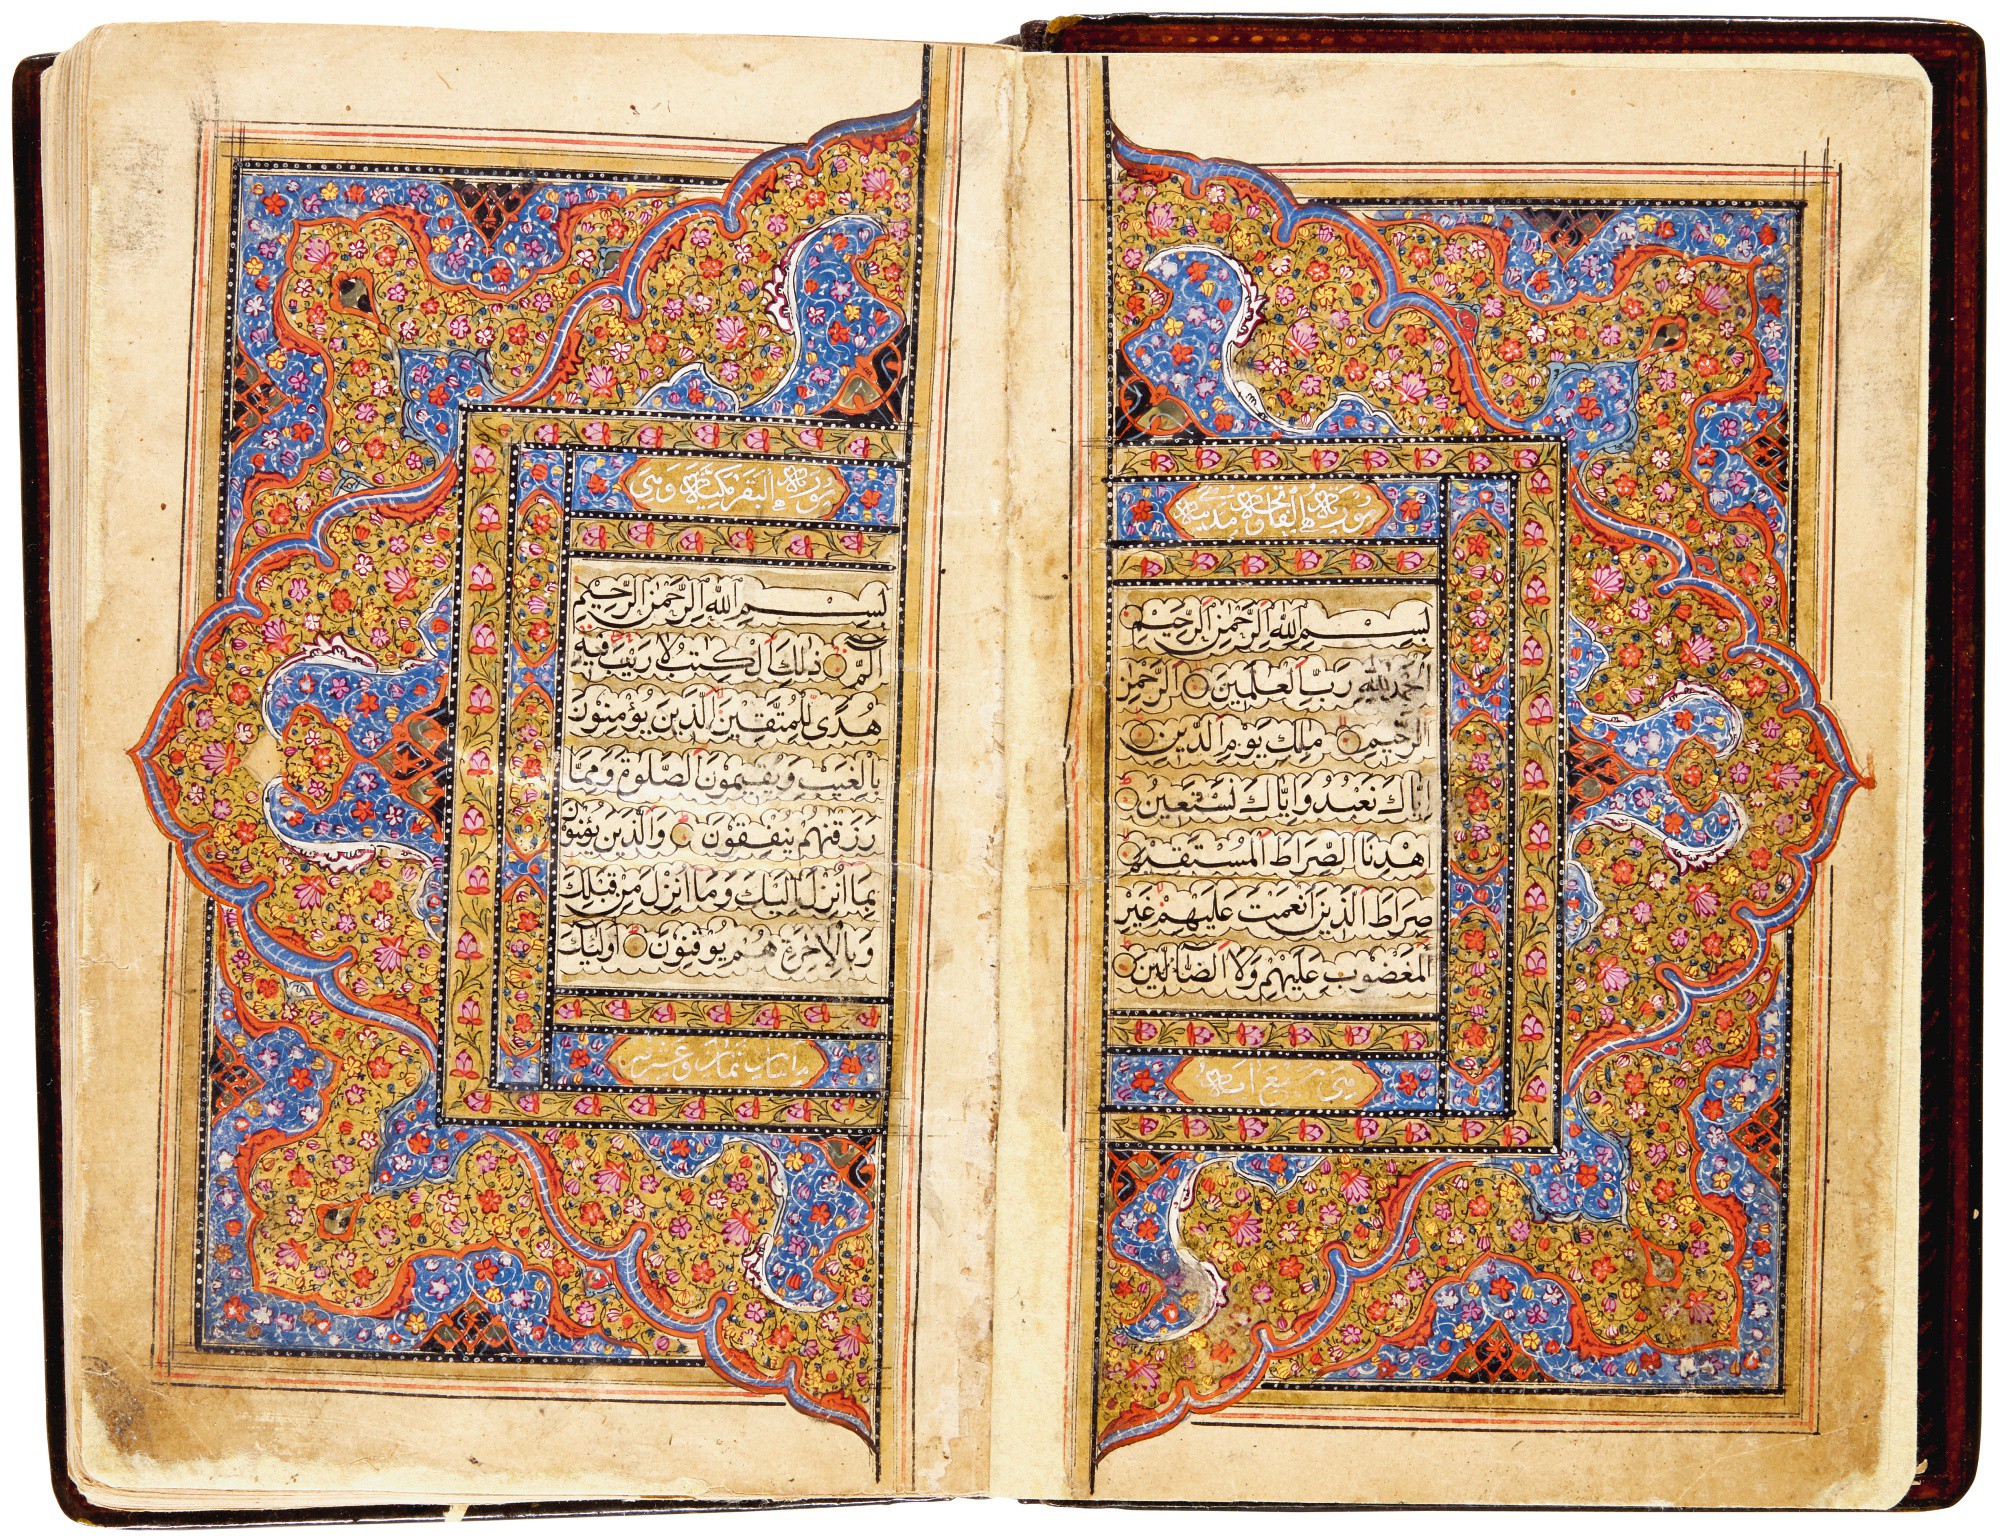 سورة الفاتحة مدنية
بِسْمِ اللهِ الرَّحْمٰنِ الرَّحِيْمِ
اَلْحَمْدُ لِلّٰهِ رَبِّ الْعٰلَمِيْنَ الرَّحْمٰنِ
الرَّحِيْمِ مٰلِكِ يَوْمِ الدِّيْنِ
اِيَّاكَ نَعْبُدُ وَاِيَّاكَ نَسْتَعِيْنُ
اِهْدِنَا الصِّرَاطَ الْمُسْتَقِيْمَ
صِرَاطَ الَّذِيْنَ اَنْعَمْتَ عَلَيْهِمْ غَيْرِ
الْمَغْضُوْبِ عَلَيْهِمْ وَلَا الضَّآلِّيْنَ
وهى سبع ايات
سورة البقر مكية وهى
بِسْمِ اللهِ الرَّحْمٰنِ الرَّحِيْمِ
الٓمّٓ ذٰلِكَ الْكِتٰبُ لَا رَيْبَ فِيْهِ
هُدًى لِلْمُتَّقِيْنَ الَّذِيْنَ يُؤْمِنُوْنَ
بِالْغَيْبِ وَيُقِيْمُوْنَ الصَّلٰوةَ وَمِمَّا
رَزَقْنٰهُمْ يُنْفِقُوْنَ وَالَّذِيْنَ يُؤْمِنُوْنَ
بِمَا اُنْزِلَ اِلَيْكَ وَمَا اُنْزِلَ مِنْ قَبْلِكَ
وَبِالْاٰخِرَةِ هُمْ يُوْقِنُوْنَ اُولٰئِكَ